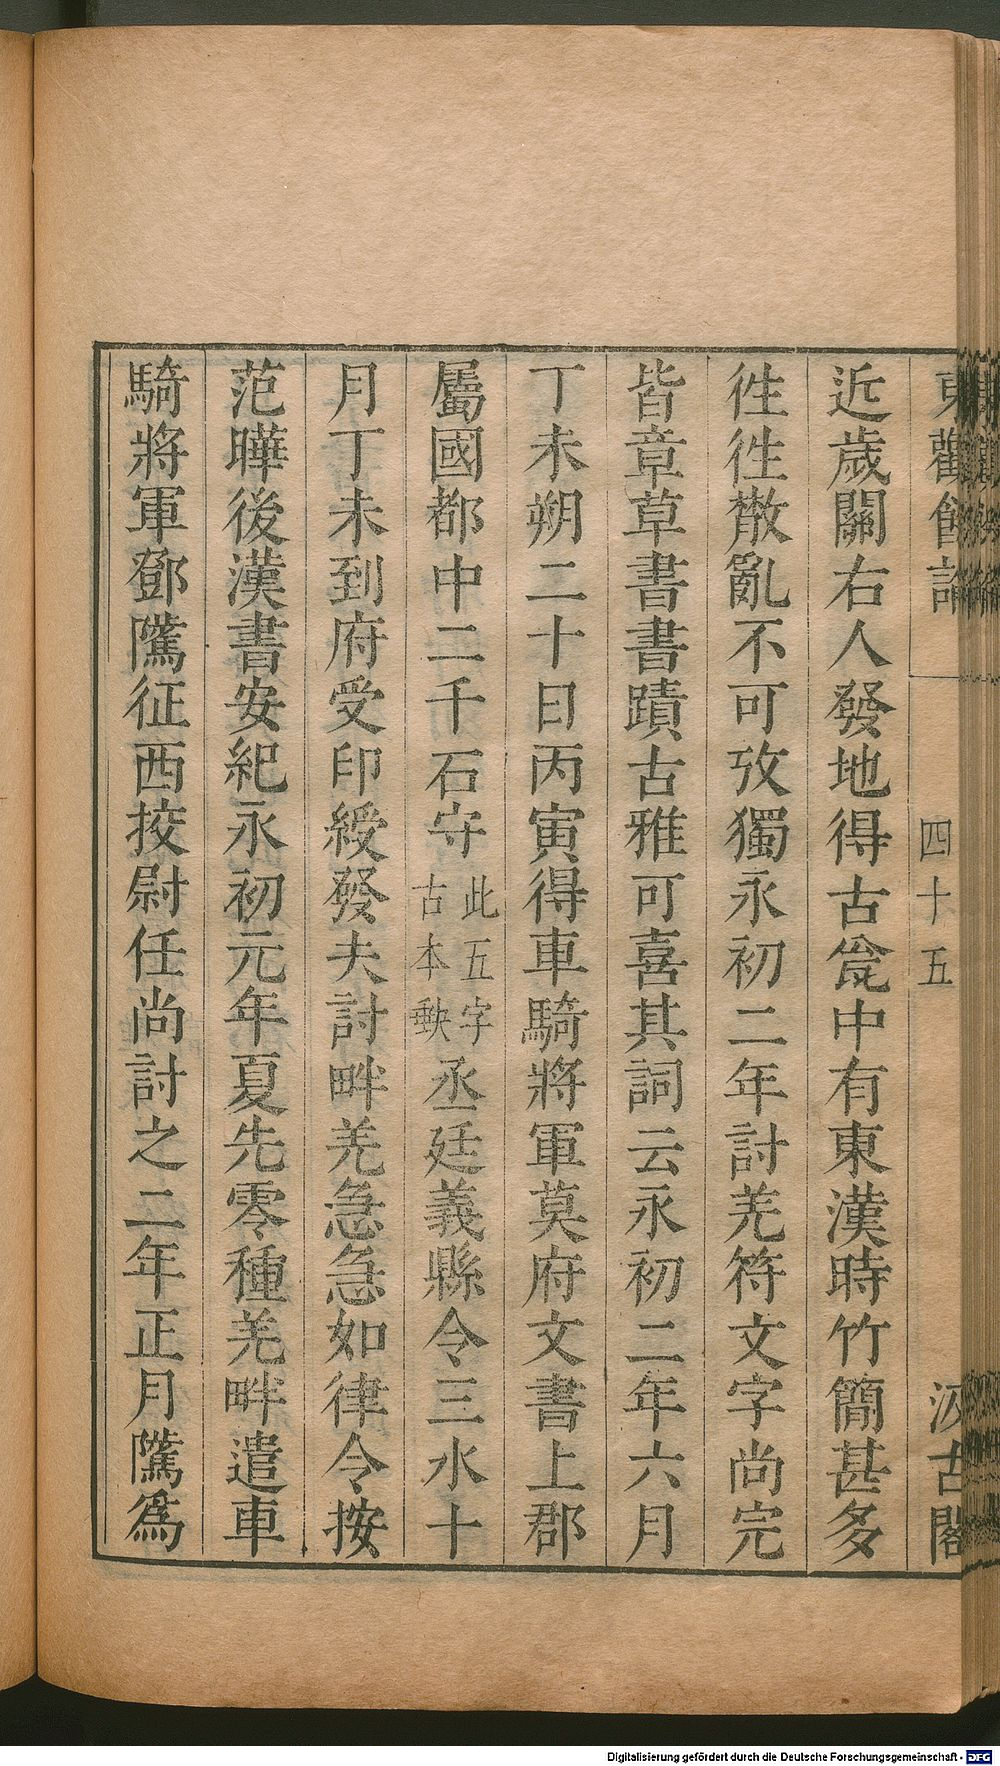 東觀餘論 四十五 汲古閣
近歲關右人發地得古瓮中有東漢時竹簡甚多
徃徃散亂不可攷獨永初二年討羌符文字尚完
皆章草書書蹟古雅可喜其詞云永初二年六月
丁未朔二十日丙寅得車騎將軍莫府文書上郡
屬國都中二千石守此五字古本缺丞廷義縣令三水十
月丁未到府受印綬發夫討畔羌急急如律令按
范曄後漢書安紀永初元年夏先零種羌畔遣車
騎將軍鄧騭征西挍尉任尚討之二年正月騭爲
Digitalisierung gefördert durch die Deutsche Forschungsgemeinschaft - DFG